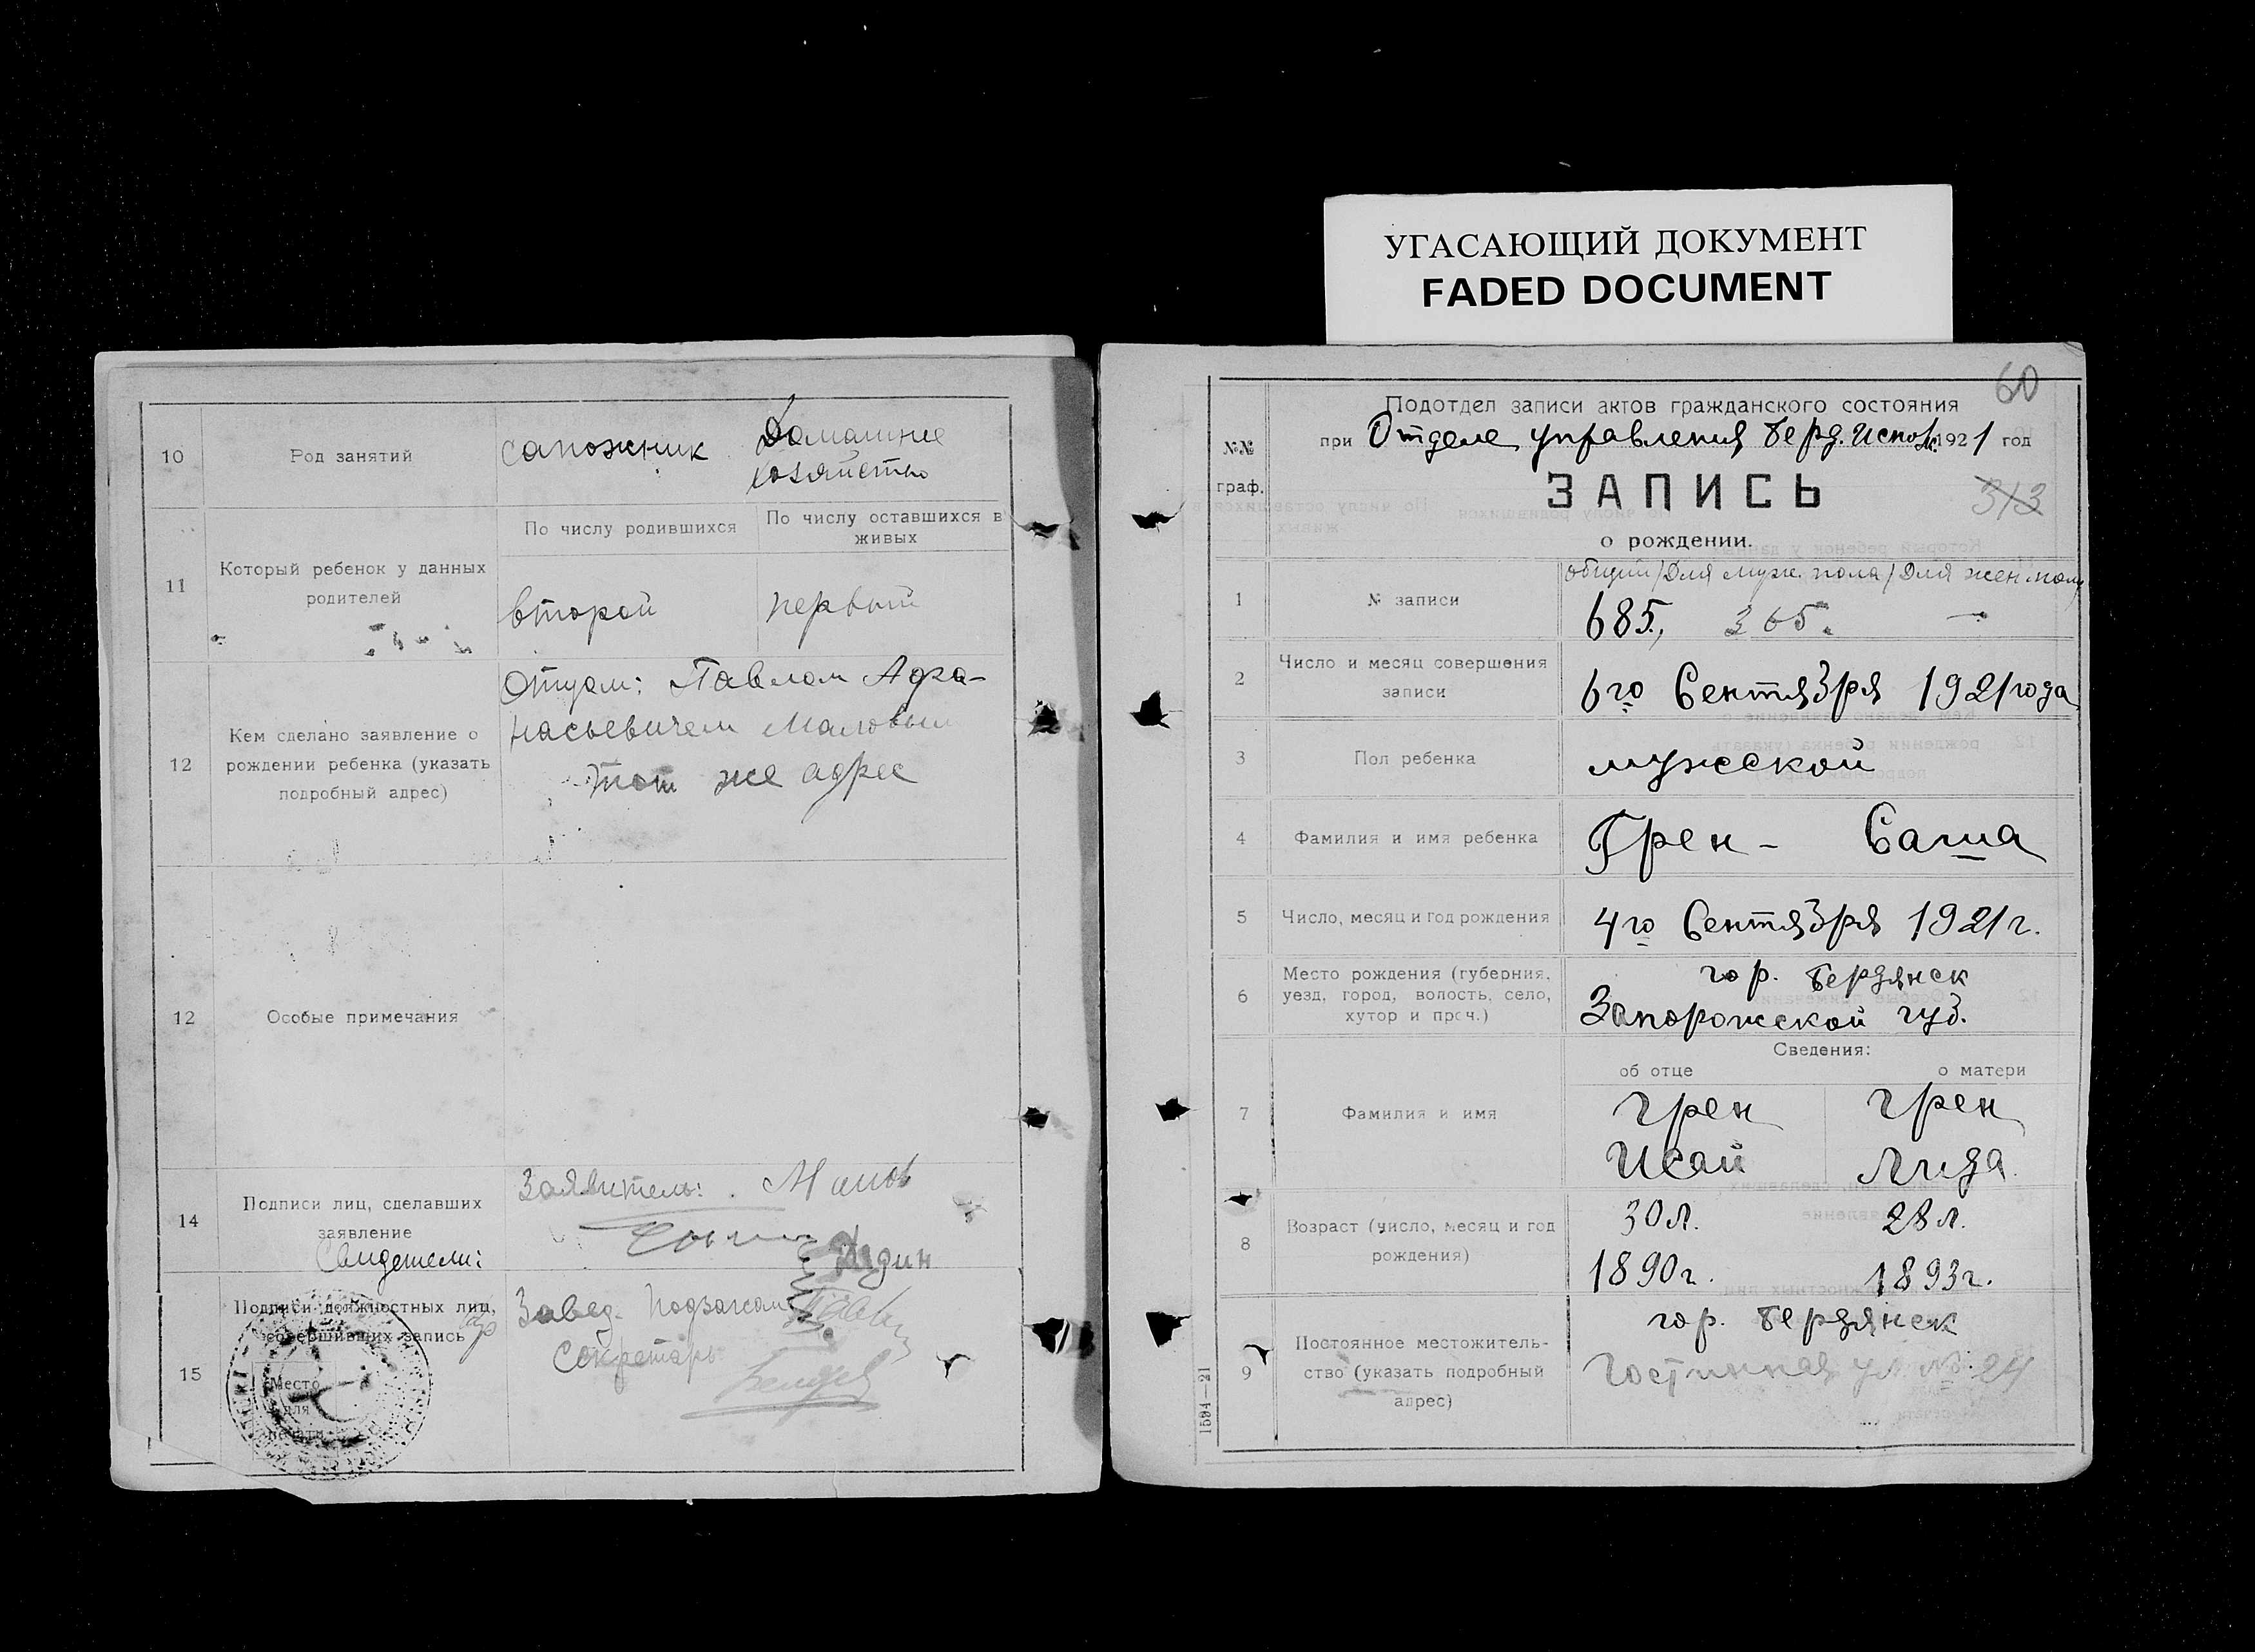 УГАСАЮЩИЙ ДОКУМЕНТ
FADED DOCUMENT
10
Род занятий
сапожник
Домашнее
хозяйство
11
Который ребенок у данных
родителей
По числу родившихся
По числу оставшихся в
живых
второй
первый
12
Кем сделано заявление о
рождении ребенка (указать
подробный адрес)
Отцом: Павлом Афа-
насьевичем Маловым
тот же адрес
12
Особые примечания
14
Подписи лиц, сделавших
заявление
Свидетели:
Заявитель:
15
Подписи должностных лиц,
совершивших запись
Место
для
печати
Завед.
Секретарь
60
№№
граф.
Подотдел записи актов гражданского состояния
при Отделе управления Берд. Исполк. 1921 год
ЗАПИСЬ
313
о рождении.
общий / Для муж. пола / Для жен пола
1
№ записи
685., 365. —
2
Число и месяц совершения
записи
6го Сентября 1921 года
3
Пол ребенка
мужской
4
Фамилия и имя ребенка
Грен - Саша
5
Число, месяц и год рождения
4го Сентября 1921 г.
6
Место рождения (губерния,
уезд, город, волость, село,
хутор и проч.)
гор. Бердянск
Запорожской губ.
Сведения:
об отце
о матери
7
Фамилия и имя
Грен
Исай
Грен
Лида
8
Возраст (число, месяц и год
рождения)
30 л.
28 л.
1890 г.
1893 г.
9
Постоянное местожитель-
ство (указать подробный
адрес)
гор. Бердянск
Гостинная ул № 24
1594—21